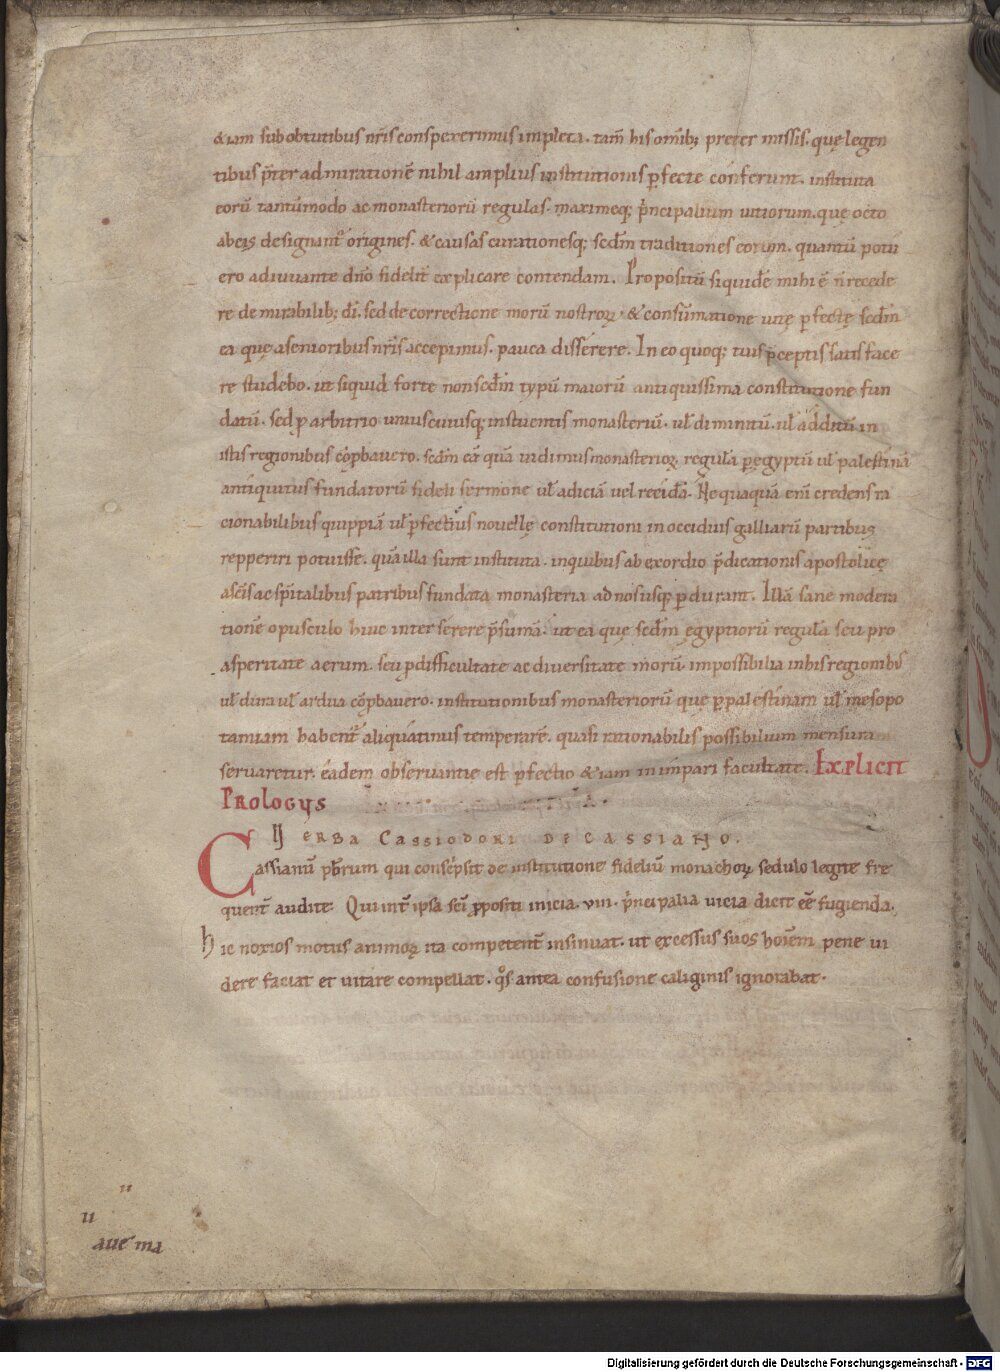 &iam sub obtutibus nr̄is conspexerimus impleta. tam̄ his om̄ib; preter missis. quę legen
tibus p̄ter admirationē nihil amplius institutionis ꝑfectę conferunt. instituta
eorū tantūmodo ac monasteriorū regulas. maximeq; p̄ncipalium uitiorum. quę octo
ab eis designant᷑ origines. & causas curationesq; scd̄m traditiones eorum. quantū potu
ero adiuuante dn̄o fidelit̄ explicare contendam. Propositū siquidē mihi ē n̄ recede
re de mirabilib; dī. sed de correctione morū nostroꝝ. & consūmatione uitę ꝑfectę scd̄m
ea quę a senioribus nr̄is accepimus. pauca disserere. In eo quoq; tuis p̄ceptis satisface
re studebo. ut siquid forte non scd̄m typū maiorū antiquissima constitutione fun
datū. sed ꝓ arbitrio uniuscuiusq; instituentis monasteriū. ul̄ diminutū. ul̄ additū in
istis regionibus cōꝑbauero. scd̄m eā quā uidimus monasterioꝝ regulā ꝑ egyptū ul̄ palestinā
antiquitus fundatorū fideli sermone ul̄ adiciā uel recidā. Nequaquā enī credens ra
cionabilibus quippiā ul̄ ꝑfectius nouellę constitutioni in occiduis galliarū partibus
repperiri potuisse. quā illa sunt instituta. in quibus ab exordio p̄dicationis apostolicę
a sc̄is ac sp̄italibus patribus fundata monasteria ad nos usq; ꝑdurant. Illā sane modera
tionē opusculo huic interserere p̄sumā. ut ea quę scd̄m egyptiorū regulā seu pro
asperitate aerum. seu ꝓ difficultate ac diversitate morū impossibilia in his regionibus
ul̄ dura ul̄ ardua cōꝑbauero. institutionibus monasteriorū que ꝑ palestinam ul̄ mesopo
tamiam habent᷑ aliquatinus temperarē. quasi rationabilis possibilium mensura
servaretur. eadem obseruantię est ꝑfectio &iam in impari facultate. Explicit
Prologus
Verba Cassiodori de Cassiano.
Cassianū pb̄rum qui conscripsit de institutione fideliū monachoꝝ sedulo legite fre
quent̄ audite. Qui int̄ ipsa sc̄i ꝓpositi inicia. viii. p̄ncipalia uicia dicit eē fugienda.
hic noxios motus animoꝝ ita competent̄ insinuat. ut excessus suos hoīem pene ui
dere faciat et uitare compellat. qͦs antea confusione caliginis ignorabat.
u
aue ma
Digitalisierung gefördert durch die Deutsche Forschungsgemeinschaft - DFG